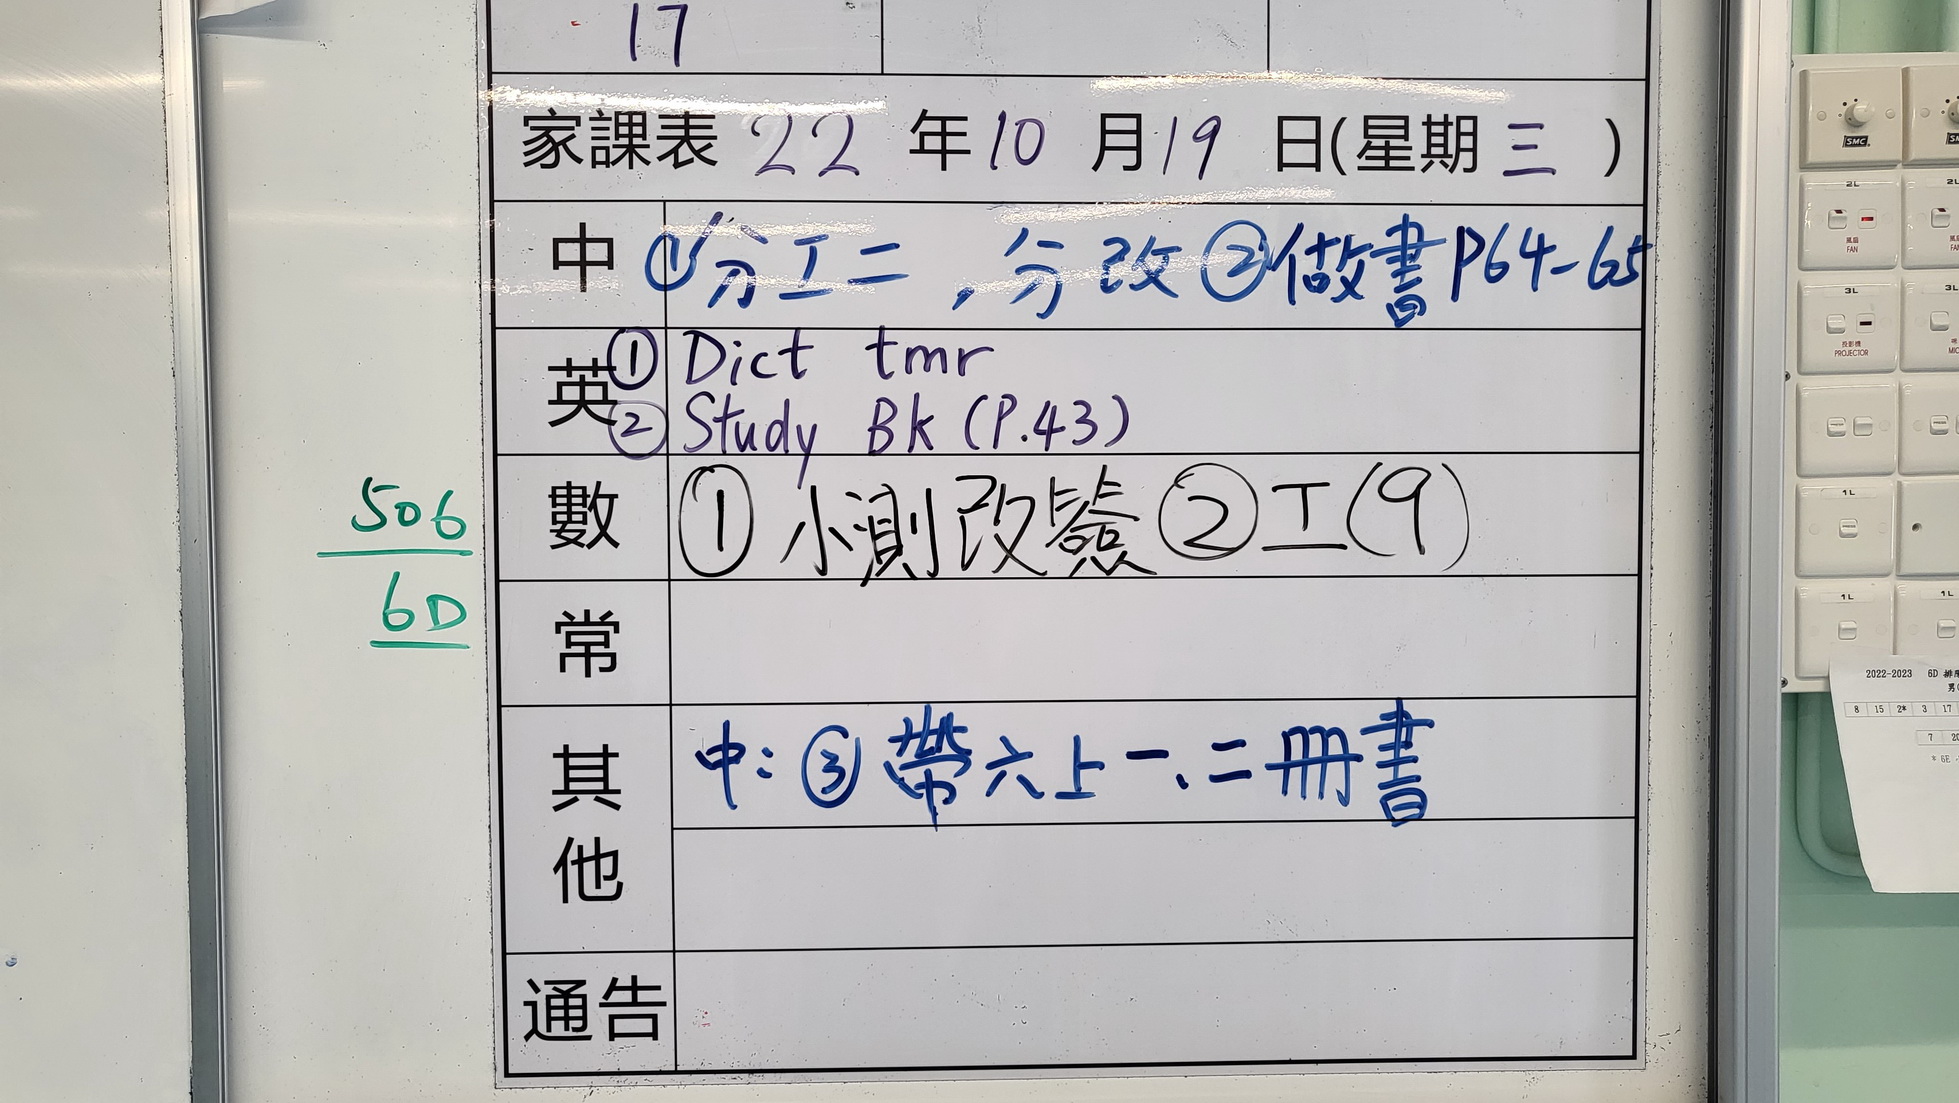 17
家課表 22 年 10 月 19 日(星期 三 )
中 ①分工二，分改 ②做書P64-65
英 ① Dict tmr
② Study Bk (P.43)
數 ① 小測改簽 ② 工(9)
506
6D
常
其他 中：③帶六上一、二冊書
通告
SMC
2L
風扇
FAN
3L
投影機
PROJECTOR
1L
1L
1L
2022-2023 6D
8 15 2* 3 17
7
* 6E